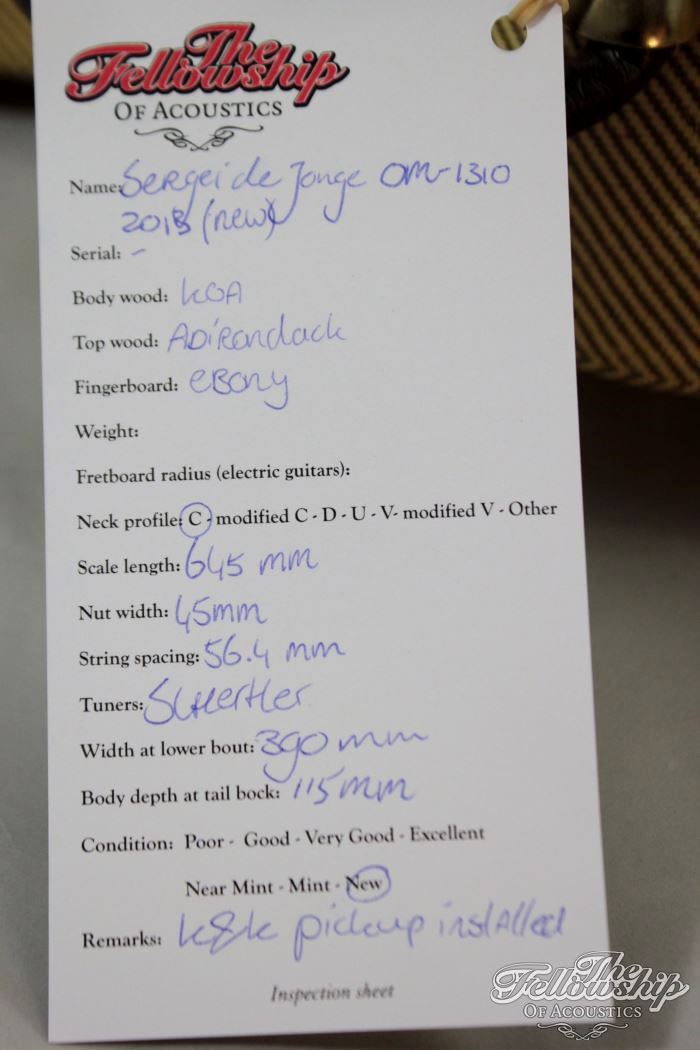 The
Fellowship
OF ACOUSTICS
Name: Sergei de Jonge OM-1310
2013 (new)
Serial: -
Body wood: KOA
Top wood: ADiRondack
Fingerboard: eBony
Weight:
Fretboard radius (electric guitars):
Neck profile: C - modified C - D - U - V- modified V - Other
Scale length: 645 mm
Nut width: 45mm
String spacing: 56.4 mm
Tuners: Schertler
Width at lower bout: 390 mm
Body depth at tail bock: 115 mm
Condition: Poor - Good - Very Good - Excellent
Near Mint - Mint - New
Remarks: k&k pickup installed
Inspection sheet
The
Fellowship
OF ACOUSTICS